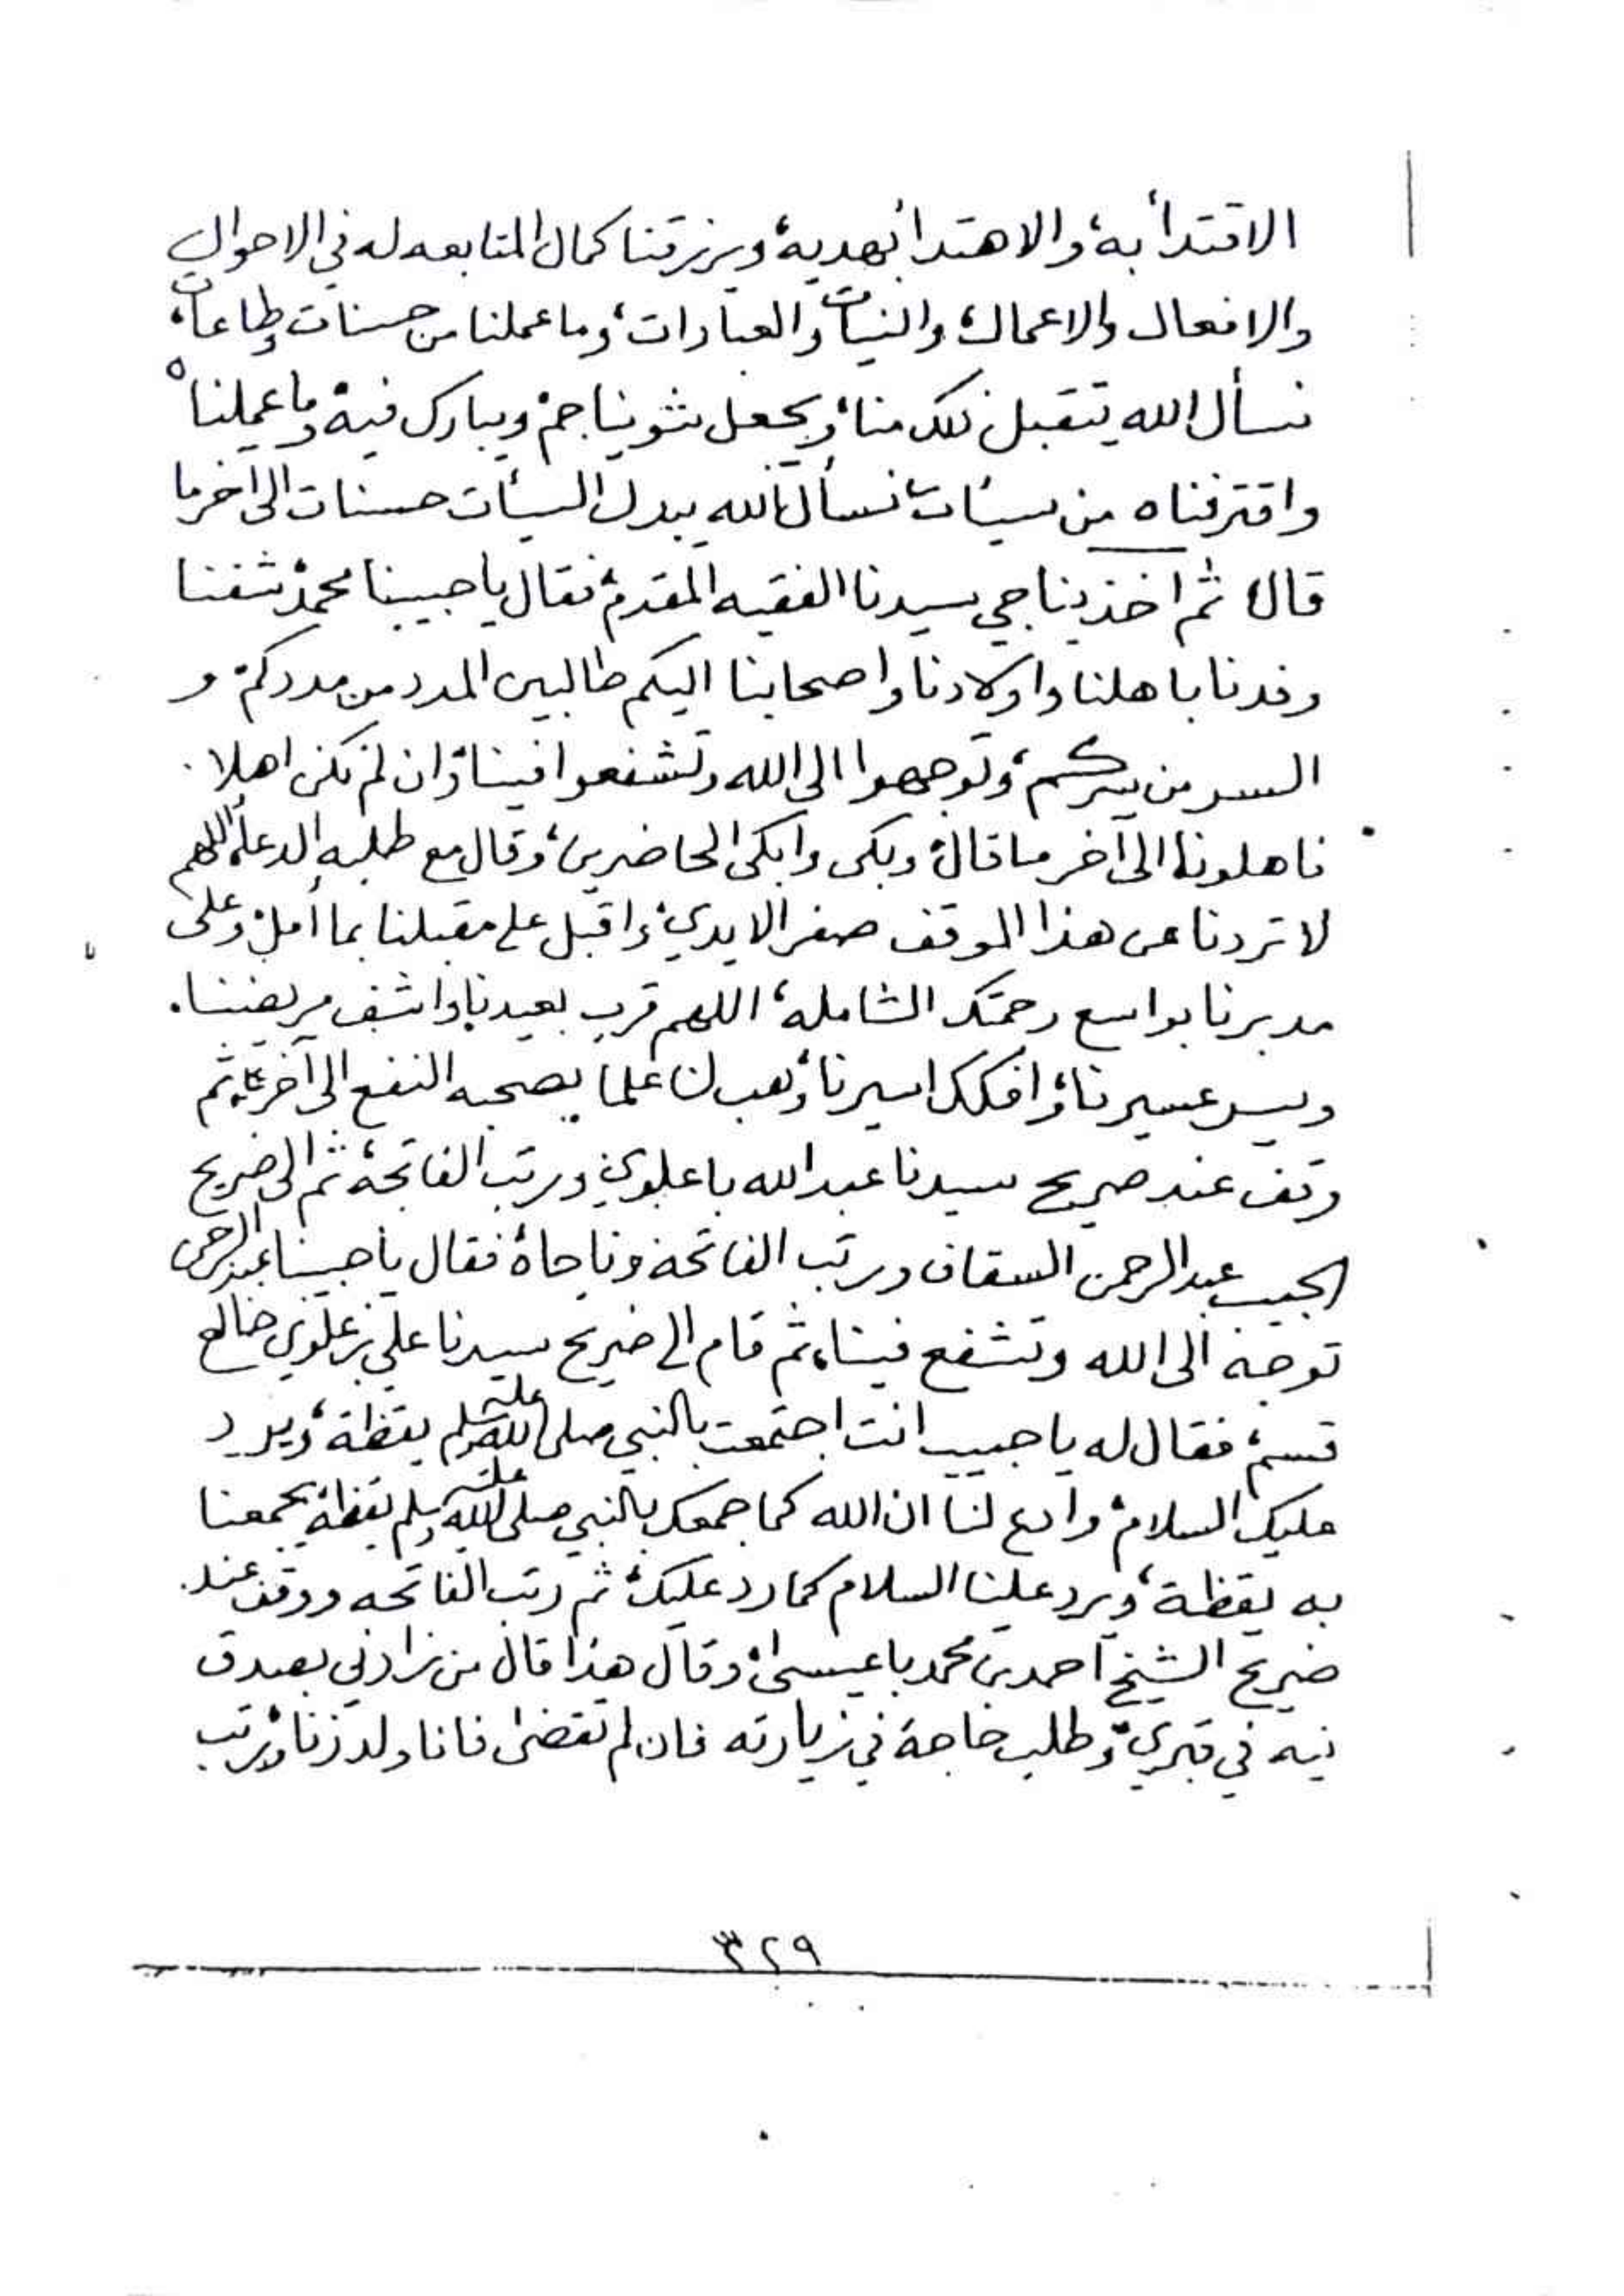 الاقتدأ به، والاهتدأ بهديه، ويرزقنا كمال المتابعه له في الاحوال
والافعال والاعمال، والنيات والعبادات، وما عملنا من حسنات وطاعات،
نسأل الله يتقبل ذلك منا، ويجعل شويناجم، ويبارك فيه، وما عملناه
واقترفناه من سيئات، نسأل الله يبدل السيئات حسنات الى آخر ما
قال، ثم اخذ يناجي سيدنا الفقيه المقدم، فقال يا حبيبنا محمد شفنا
وفدنا باهلنا واولادنا واصحابنا اليكم طالبين المدد من مددكم، و
السر من سركم، وتوجهوا الى الله وتشفعوا فينا، وان لم نكن اهلا
فاهلونا، الى آخر ما قال، وبكى وابكى الحاضرين، وقال مع طلبه الدعأ، اللهم
لا تردنا عن هذا الموقف صفر الايدي، واقبل على مقبلنا بما أمل، وعلى
مدبرنا بواسع رحمتك الشاملة، اللهم قرب بعيدنا، واشف مريضنا،
ويسر عسيرنا، وافكك اسيرنا، وهب لنا علما يصحبه النفع الى آخر دعائه، ثم
وقف عند ضريح سيدنا عبدالله باعلوي، ورتب الفاتحة، ثم الى ضريح
الحبيب عبدالرحمن السقاف ورتب الفاتحة وناجاه، فقال يا حبيبنا عبدالرحمن
توجه الى الله وتشفع فينا، ثم قام الى ضريح سيدنا علي بن علوي خالع
قسم، فقال له يا حبيب انت اجتمعت بالنبي صلى الله عليه وسلم يقظة، ويرد
عليك السلام، وادع لنا ان الله كما جمعك بالنبي صلى الله عليه وسلم يقظة، يجمعنا
به يقظة، ويرد علينا السلام كما رد عليك، ثم رتب الفاتحه ووقف عند
ضريح الشيخ احمد بن محمد باعيسى، وقال هذا قال من زارني بصدق
نيه في قبري، وطلب حاجة في زيارته فان لم تقضى فانا ولد زنا، ورتب
٣٢٩